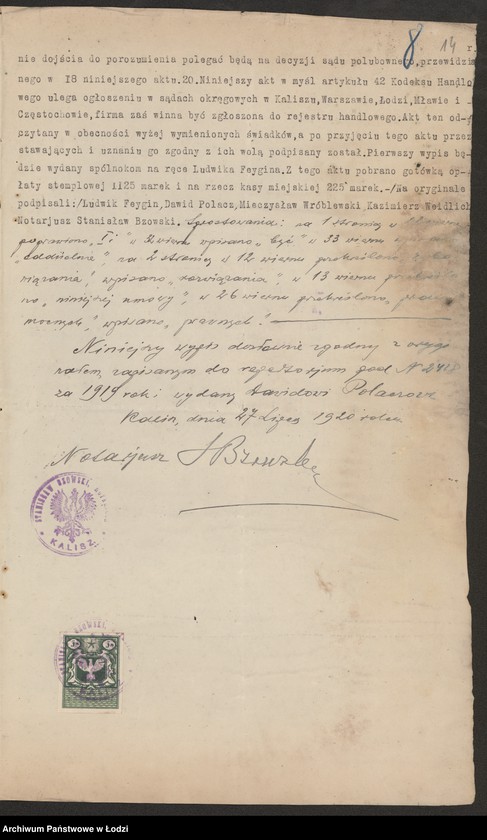 8 14
nie dojścia do porozumienia polegać będą na decyzji sądu polubownego, przewidzia
nego w I8 niniejszego aktu.20.Niniejszy akt w myśl artykułu 42 Kodeksu Handlo
wego ulega ogłoszeniu w sądach okręgowych w Kaliszu,Warszawie,Łodzi,Mławie i
Częstochowie,firma zaś winna być zgłoszona do rejestru handlowego.Akt ten od-
czytany w obecności wyżej wymienionych świadków,a po przyjęciu tego aktu przez
stawających i uznaniu go zgodny z ich wolą podpisany został.Pierwszy wypis bę-
dzie wydany spólnokom na ręce Ludwika Feygina.Z tego aktu pobrano gotówką op-
łaty stemplowej II25 marek i na rzecz kasy miejskiej 225 marek.-/Na oryginale
podpisali:/Ludwik Feygin,Dawid Polacz,Mieczysław Wróblewski,Kazimierz Weidlich
Notarjusz Stanisław Bzowski. Sprostowania: na 1 stronicy w
poprawiono „I i” w 2 wierszu wpisano „być” w 33 wierszu
oddzielnie”, na 2 stronicy w 12 wierszu przekreślono
wiązania”, wpisano „rozwiązania”, w 13 wierszu
no „niniejszej umowy”, w 26 wierszu przekreślono
wpisano
Niniejszy wypis dosłownie zgodny z orygi
nałem zapisanym do repertorjum pod N 2418
za 1919 rok i wydany Dawidowi Polaczowi
Kalisz, dnia 27 Lipca 1920 roku.
Notarjusz S Bzowski
STANISŁAW BZOWSKI
KALISZ
Archiwum Państwowe w Łodzi